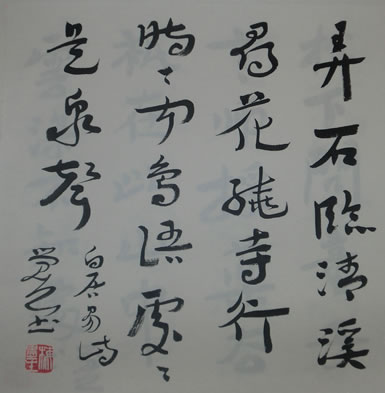 弄石臨清溪
尋花繞寺行
時々聞鳥語處々
是泉聲
白居易詩
書